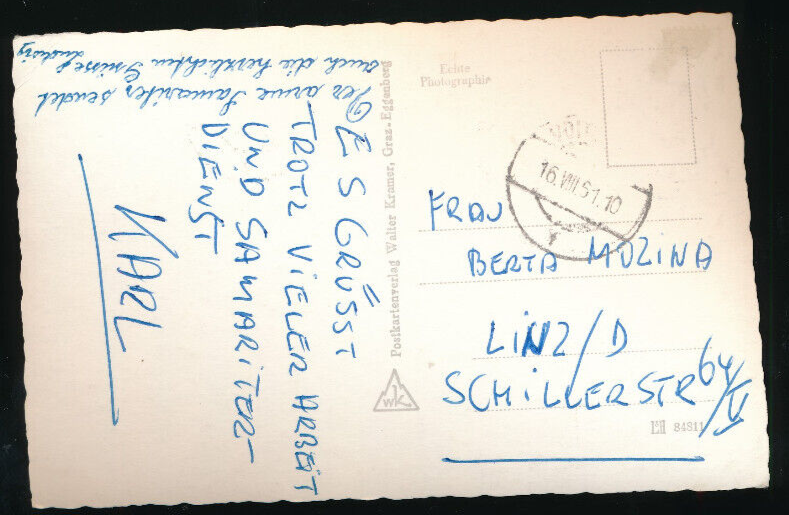 ES GRÜSST
TROTZ VIELER ARBEIT
UND SAMARITER-
DIENST
KARL
Der arme Samariter sendet
auch die herzlichsten Grüsse
Ludwig
Echte
Photographie
Postkartenverlag Walter Kramer, Graz-Eggenberg
WK
16.VIII.61.10
FRAU
BERTA MUZINA
LINZ/D
SCHILLERSTR 64/II
84811